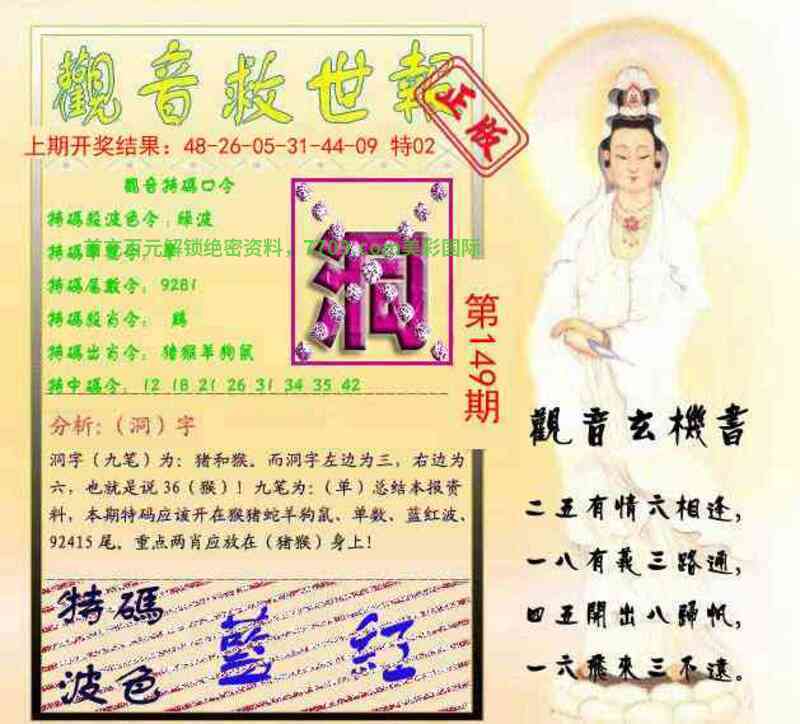 觀音救世報
正版
上期开奖结果：48-26-05-31-44-09 特02
觀音特碼口令
特碼殺波色令：綠波
首充百元解锁绝密资料，
美彩国际
特碼單雙令：單
特碼尾數令：9281
特碼殺肖令： 鷄
特碼出肖令：豬猴羊狗鼠
特中碼令：12 18 21 26 31 34 35 42
洞
第149期
分析：（洞）字
洞字（九笔）为：猪和猴。而洞字左边为三，右边为
六，也就是说36（猴）！九笔为：（单）总结本报资
料，本期特码应该开在猴猪蛇羊狗鼠、单数、蓝红波、
92415尾。重点两肖应放在（猪猴）身上！
特碼
波色
藍 紅
觀音玄機書
二五有情六相逢，
一八有義三路通，
四五開出八歸帆，
一六飛來三不遠。